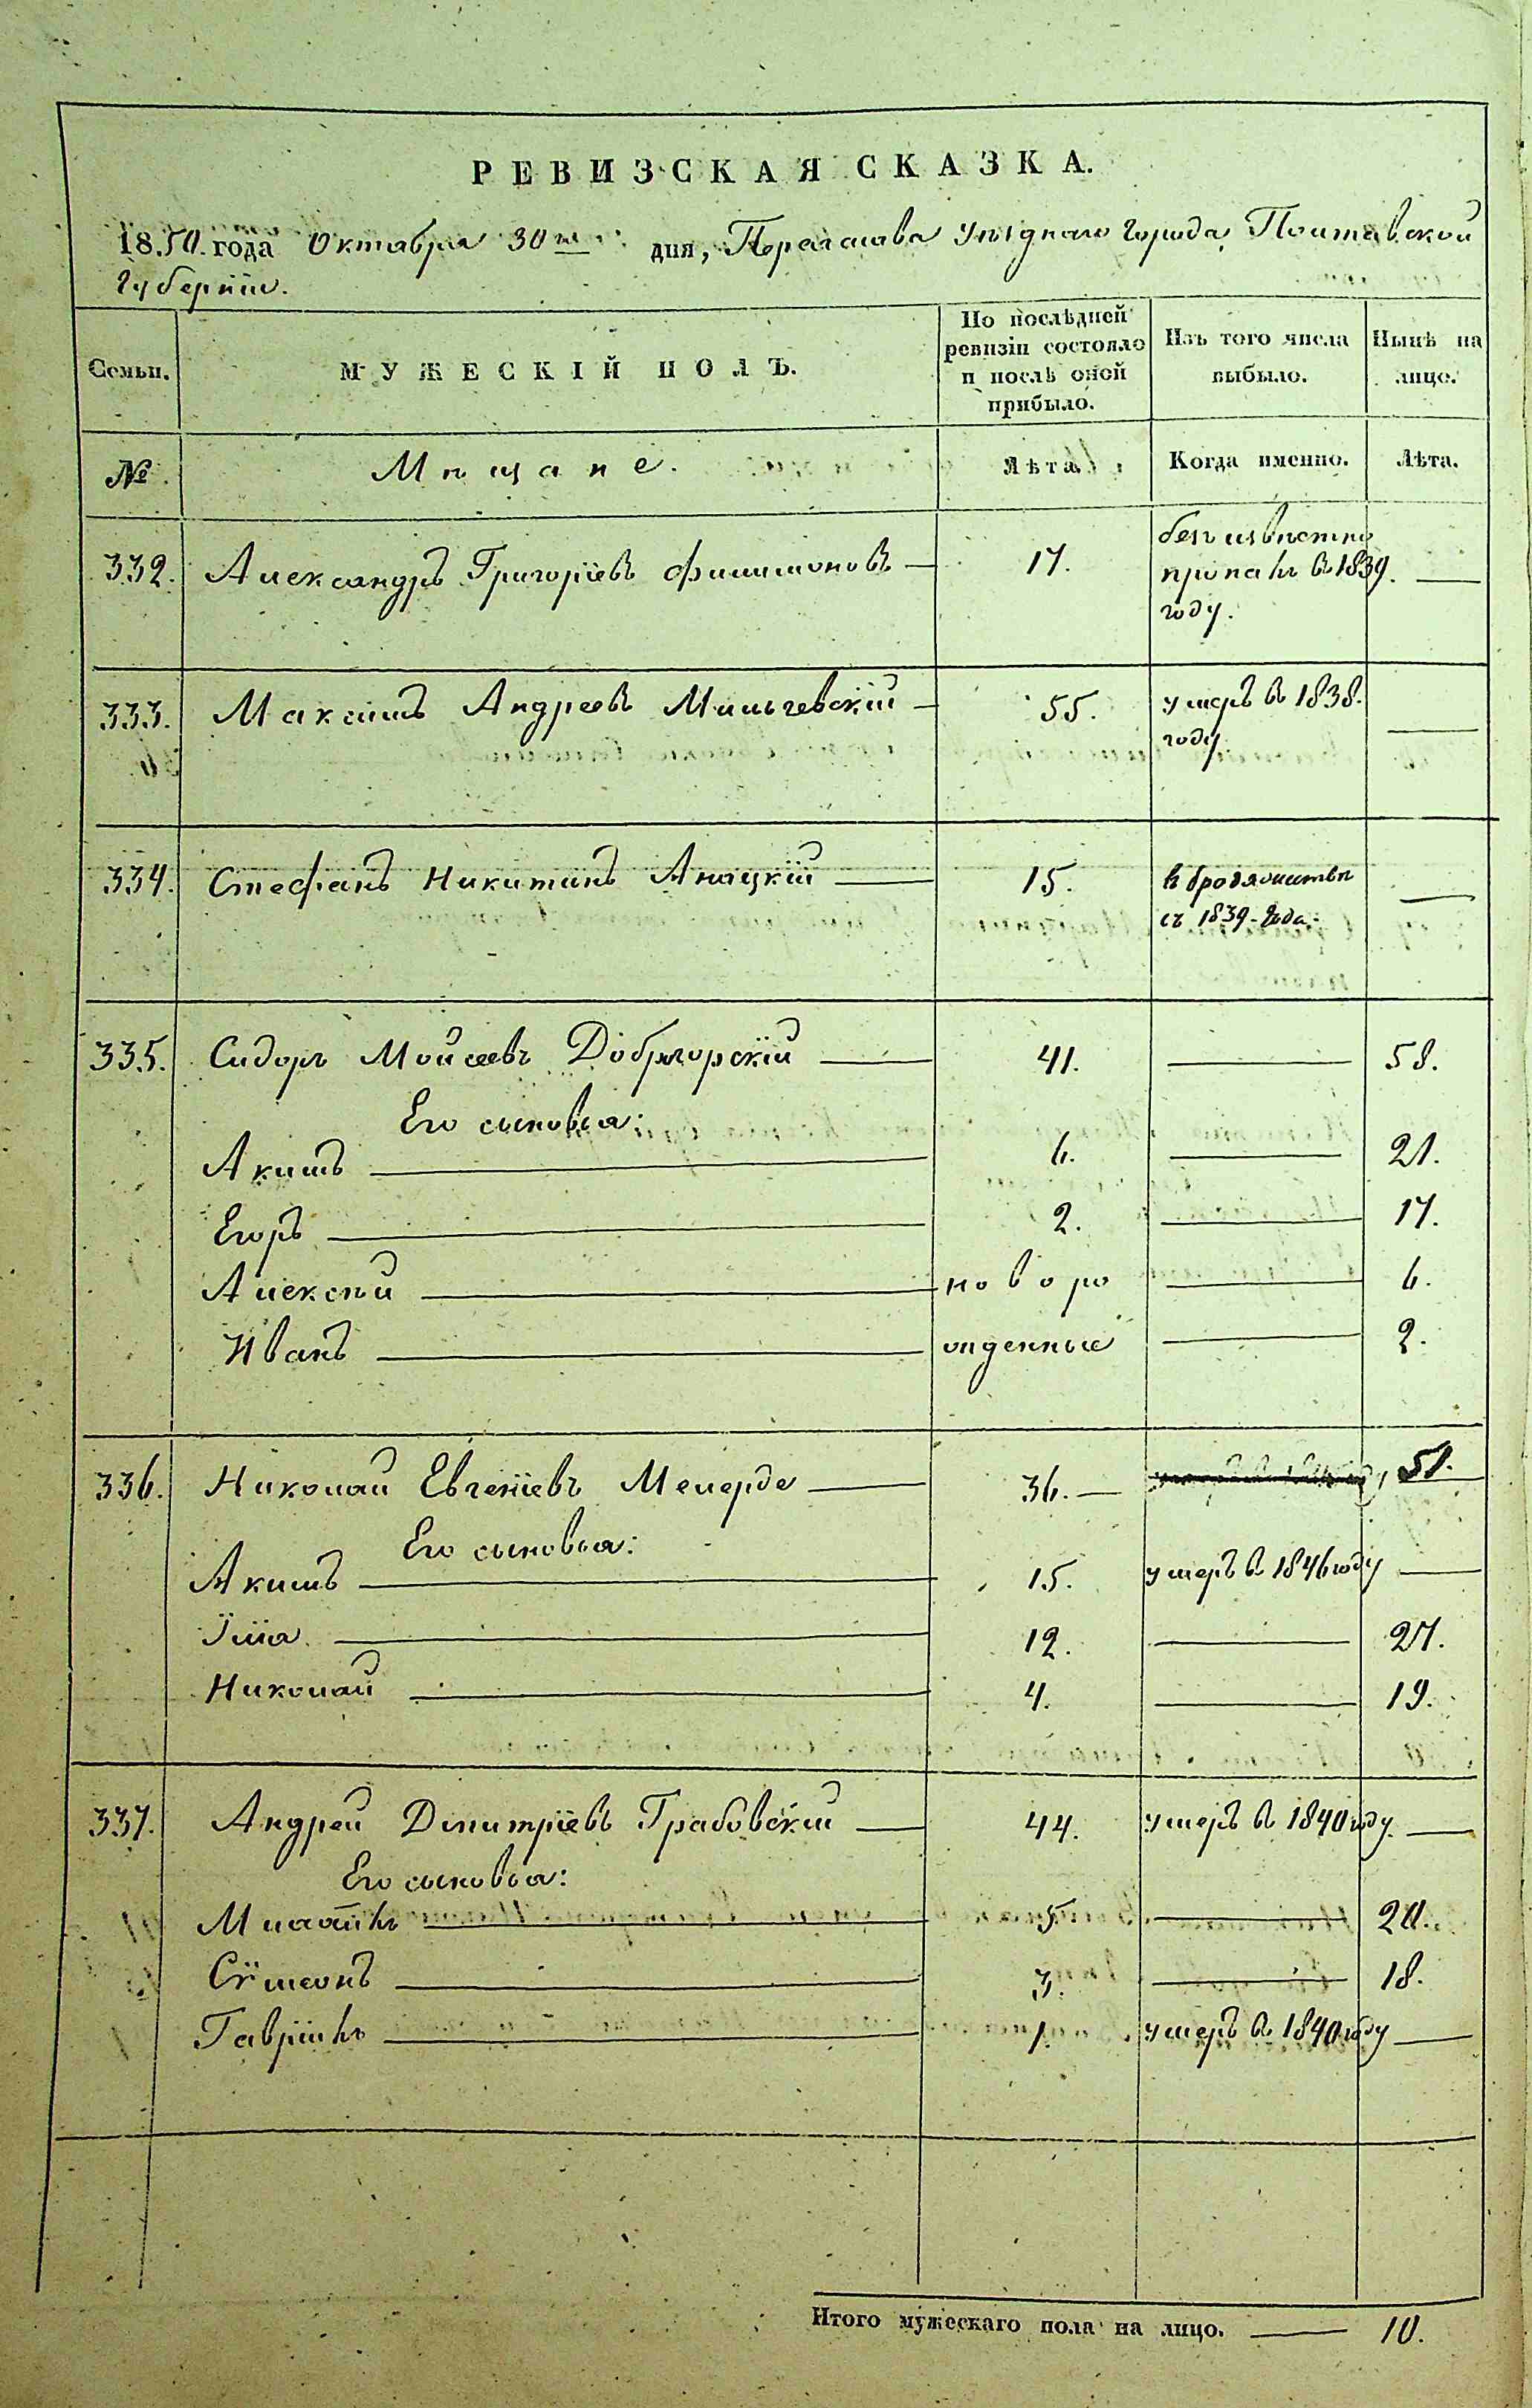 РЕВИЗСКАЯ СКАЗКА.
1850. года Октября 30 го дня, Переяслава уѣзднаго города, Полтавской
Губерніи.
Семьи. МУЖЕСКІЙ ПОЛЪ. По послѣдней ревизіи состояло и послѣ оной прибыло. Изъ того числа выбыло. Нынѣ на лице.
№ Мѣщане. Лѣта. Когда именно. Лѣта.
332. Александръ Григоріевъ Филимоновъ — 17. безъ извѣстно
пропалъ въ 1839. —
году.
333. Максимъ Андреевъ Мильчевскій — 55. умеръ въ 1838. —
году.
334. Стефанъ Никитинъ — 15. въ бродяжествѣ —
съ 1839 года.
335. Сидоръ Мойсеевъ Доброгорскій — 41. — 58.
Его сыновья:
Акимъ — 6. — 21.
Егоръ — 2. — 17.
Алексѣй — новоро — 6.
Иванъ — жденные — 2.
336. Николай Евгеніевъ Мелерде — 36. — 51.
Его сыновья:
Акимъ — 15. умеръ въ 1846 году —
Илія. — 12. — 27.
Николай — 4. — 19.
337. Андрей Димитріевъ Грабовскій — 44. умеръ въ 1840 году. —
Его сыновья:
Михаилъ — 5. — 20.
Сѵмеонъ — 3. — 18.
Гавріилъ — 1. умеръ въ 1840 году —
Итого мужескаго пола на лицо. — 10.